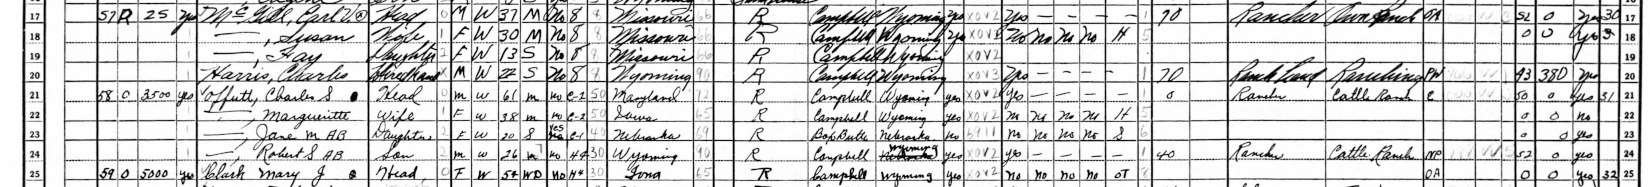 17 57 R 25 yes McGill, Carl V. Head 0 M W 37 M No 8 8 Missouri 66 R Campbell Wyoming yes X0V2 Yes — — — — 1 70 Rancher Own Ranch OA 52 0 Yes 30 17
18 —, Susan Wife 1 F W 30 M No 8 8 Missouri 66 R Campbell Wyoming Yes X0V2 No No No No H 5 0 0 yes 18
19 —, Fay Daughter 2 F W 13 S No 8 8 Missouri 66 R Campbell Wyoming X0V2 19
20 Harris, Charles Hired Hand M W 22 S No 8 8 Wyoming 90 R Campbell Wyoming X0V2 Yes — — — — 1 70 Ranch hand Ranching PW 43 380 Yes 20
21 58 O 3500 yes Offutt, Charles S Head 0 m W 61 m no C-2 50 Maryland 72 R Campbell Wyoming yes X0V2 yes — — — — 1 0 Rancher Cattle Ranch E 50 0 yes 31 21
22 —, Margueritte Wife 1 F W 38 m no C-2 50 Iowa 65 R Campbell Wyoming yes X0V2 no No no No H 5 0 0 no 22
23 —, Jane M AB Daughter 2 F W 20 S yes C-1 40 Nebraska 69 R Box Butte Nebraska no 6711 no no no no S 6 0 0 yes 23
24 —, Robert S AB Son 2 m W 26 m 7 no H4 30 Wyoming 90 R Campbell Wyoming yes X0V2 yes — — — — 1 40 Rancher Cattle Ranch NP 52 0 yes 24
25 59 O 5000 yes Clark Mary J Head 0 F W 54 WD no H4 30 Iowa 65 R Campbell Wyoming yes X0V2 no no no no OT 8 OA 0 0 yes 32 25